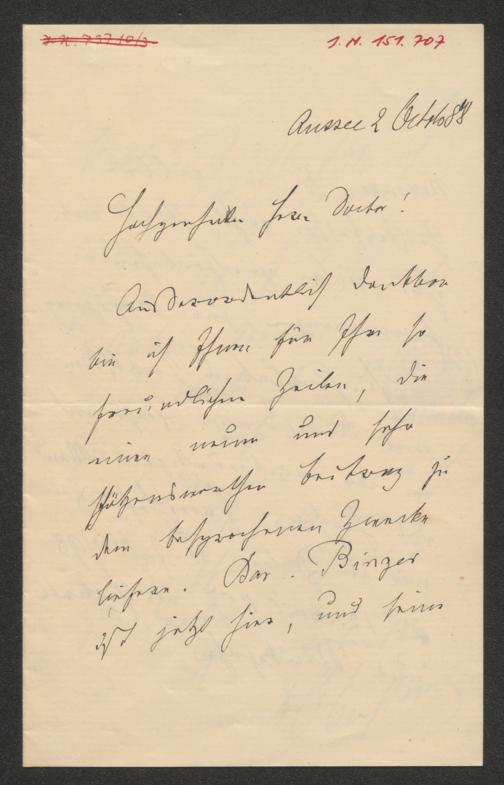 J.N. 737.10/3
J.N. 151.707
Aussee 2 Octob 88
Hochgeehrter Herr Doctor!
Außerordentlich dankbar
bin ich Ihnen für Ihre so
freundlichen Zeilen, die
einen neuen und sehr
schätzenswerthen Beitrag zu
dem besprochenen Zwecke
liefern. Bar. Binzer
ist jetzt hier, und seine